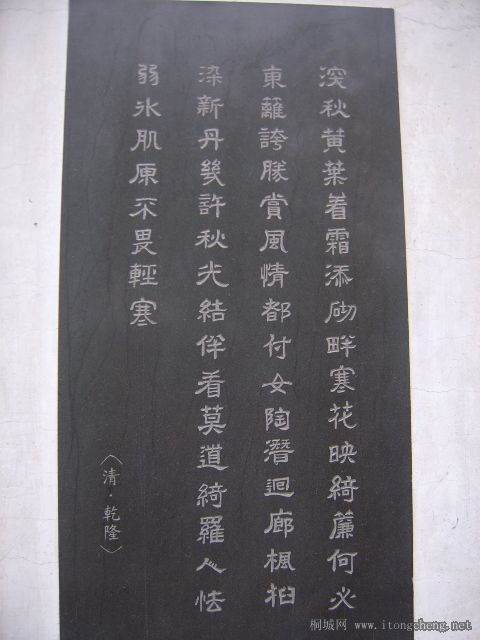 深秋黄葉着霜添砌畔寒花映綺簾何必
東籬誇勝賞風情都付女陶潛迴廊楓桕
染新丹幾許秋光結伴看莫道綺羅人怯
弱氷肌原不畏輕寒
〈清·乾隆〉
桐城网 www.itongcheng.net